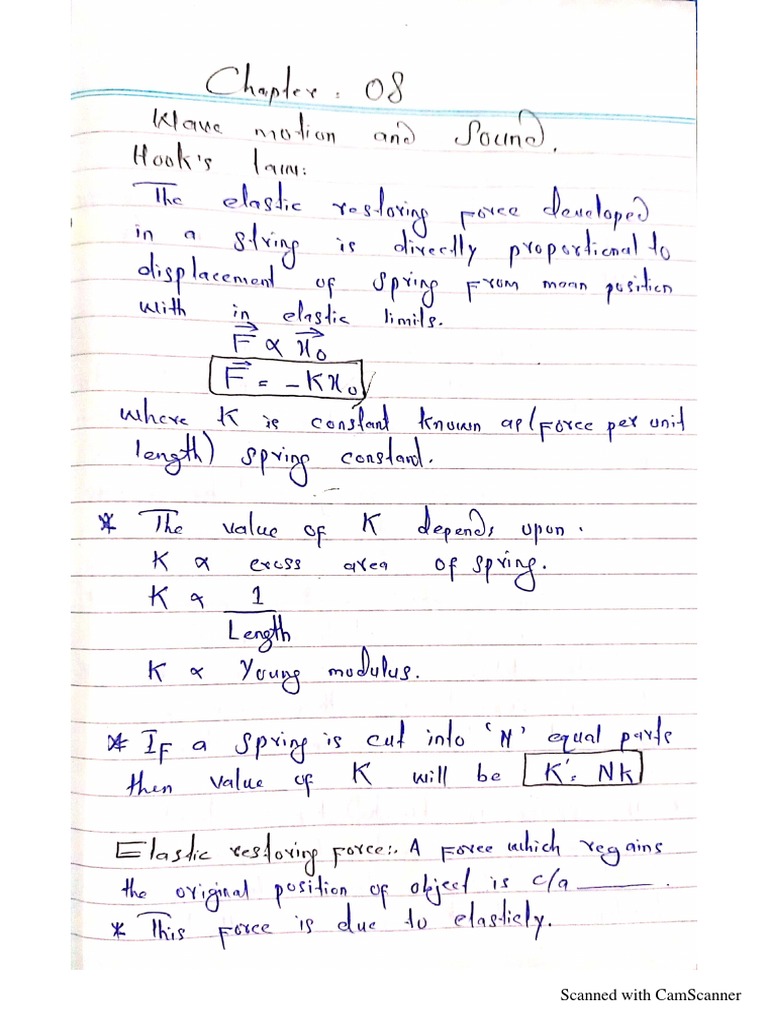 Chapter : 08
Wave motion and Sound.
Hook's law:
The elastic restoring force developed
in a string is directly proportional to
displacement of spring from mean position
with in elastic limits.
F⃗ ∝ x⃗₀
F⃗ = -Kx₀
where K is constant known as (force per unit
length) spring constant.
* The value of K depends upon.
K ∝ cross area of spring.
K ∝ 1
Length
K ∝ Young modulus.
* If a spring is cut into 'N' equal parts
then value of K will be K' = Nk
Elastic restoring force:. A force which regains
the original position of object is c/a ______.
* This force is due to elasticly.
Scanned with CamScanner